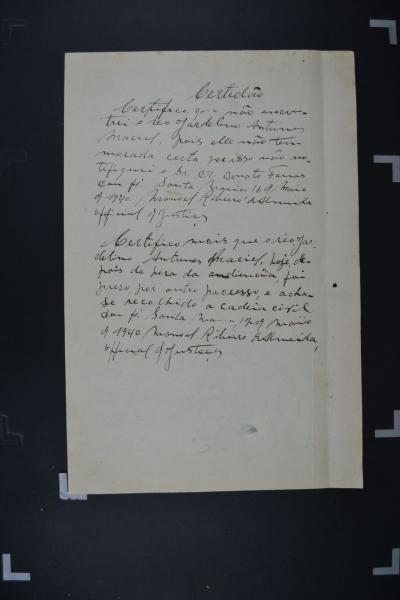 Certidão
Certifico que não encon-
trei o réo Jardelino Antunes
Maciel, pois elle não tem
morada certa por isso não no-
tifiquei o Dr.
dou fé. Santa Maria 16 de Maio
de 1940. Manoel Ribeiro de Almeida
official de Justiça
Certifico mais que o réo Ja-
delino Antunes Maciel, hoje, de-
pois da hora da audiencia, foi
preso por outro processo, e acha-
se recolhido a cadeia civil
dou fé. Santa Maria, 17 de maio
de 1940 Manoel Ribeiro de Almeida,
official de Justiça